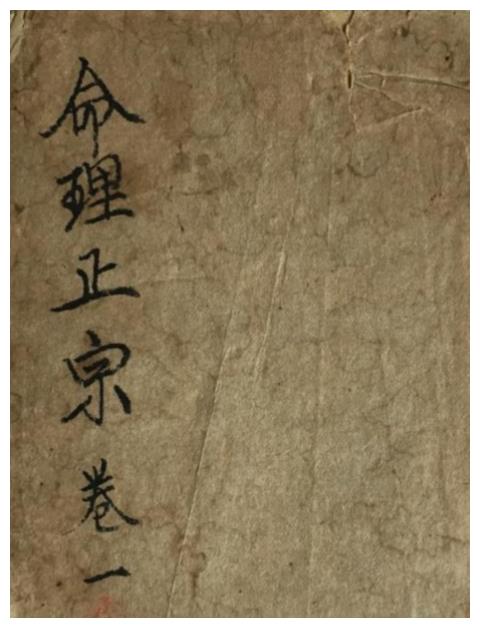 命理正宗 卷一